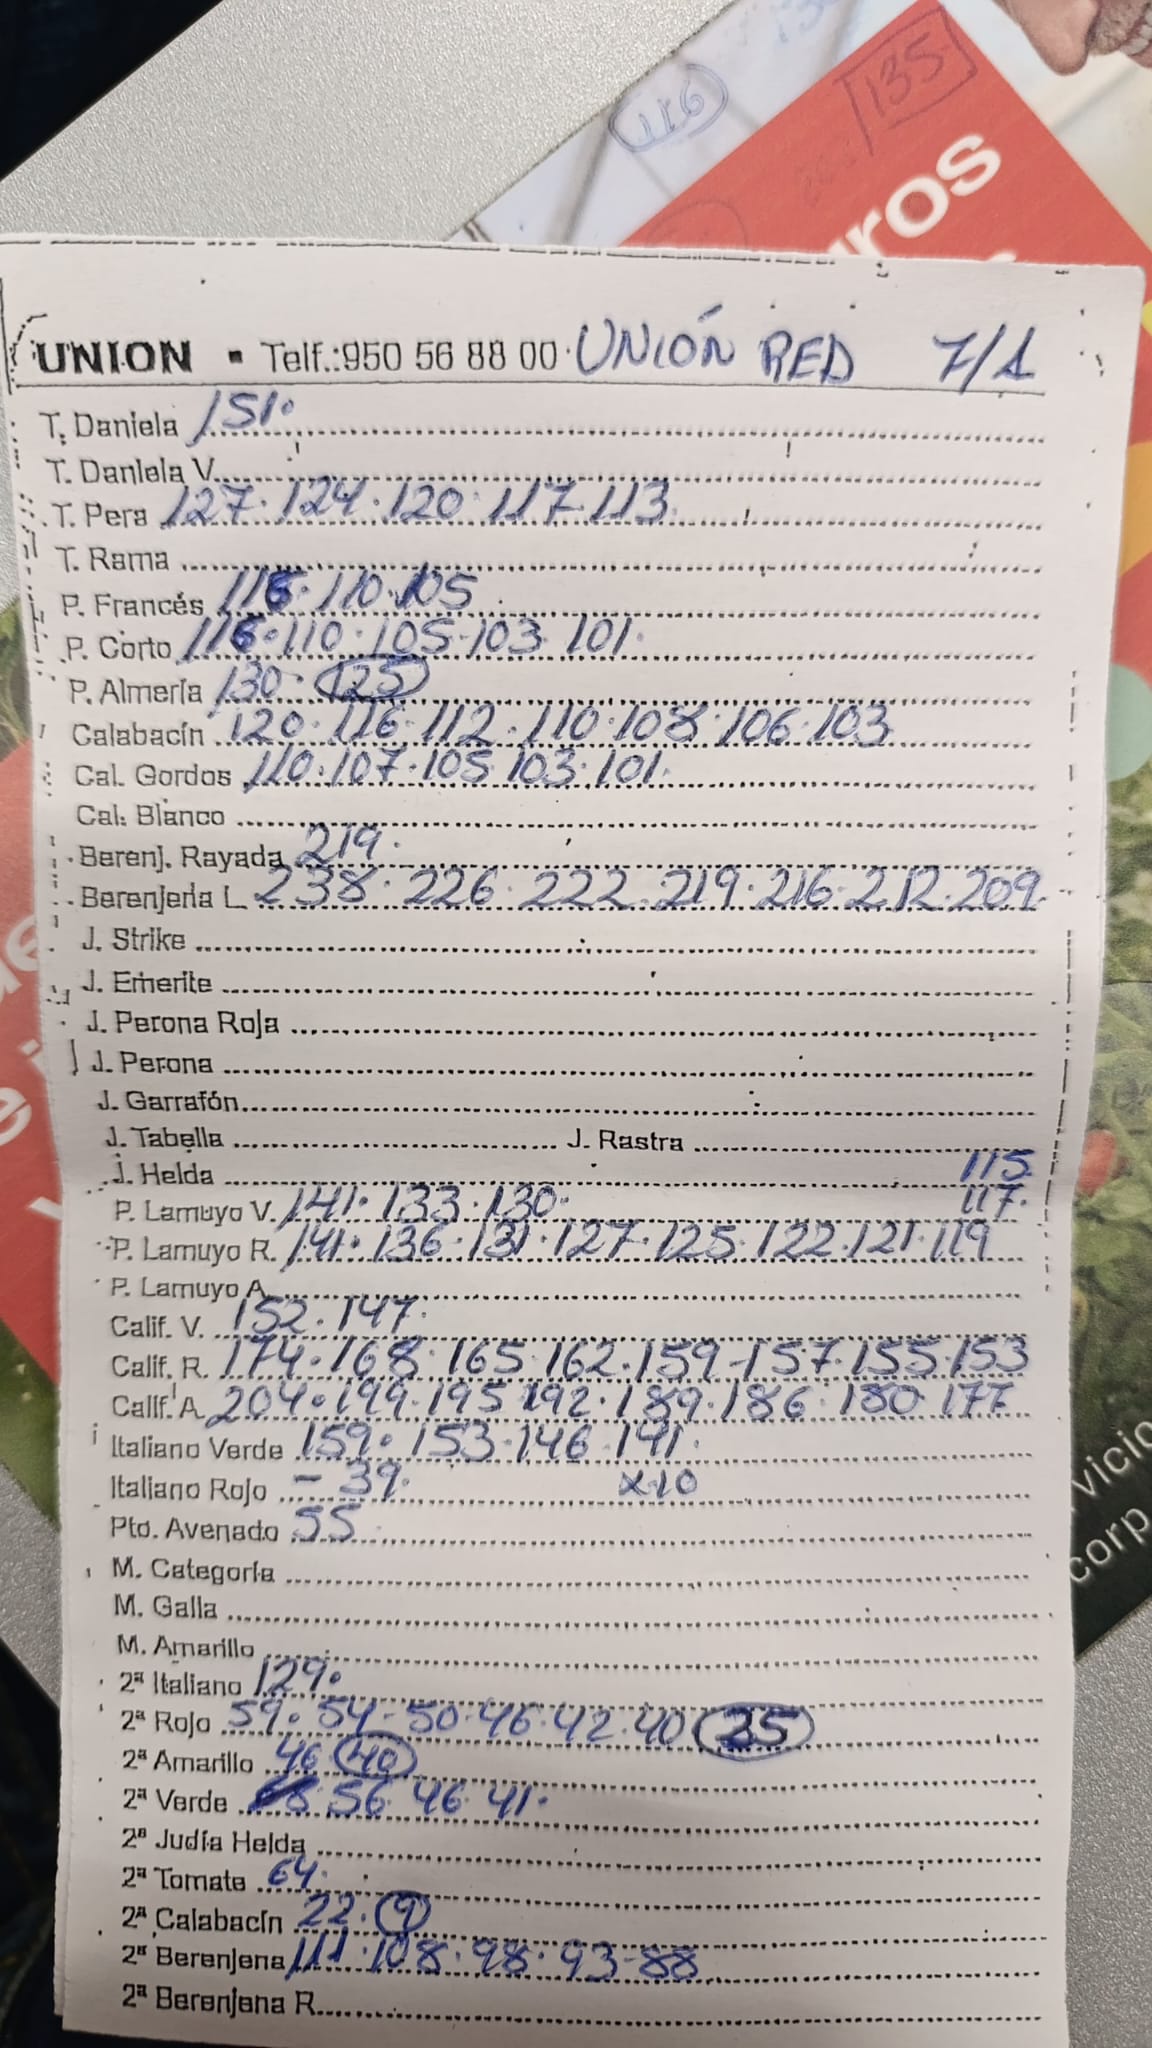 116
135
uros
UNION ▪ Telf.:950 56 88 00 UNIÓN RED 7/1
T. Daniela 151.
T. Daniela V.
T. Pera 127. 124. 120. 117. 113
T. Rama
P. Francés 116. 110. 105
P. Corto 116. 110. 105-103. 101.
P. Almería 130. 125
Calabacín 120. 116. 112. 110. 108. 106. 103
Cal. Gordos 110. 107. 105. 103. 101.
Cal. Blanco
Berenj. Rayada 219.
Berenjena L. 238. 226. 222. 219. 216. 212. 209.
J. Strike
J. Emerite
J. Perona Roja
J. Perona
J. Garrafón
J. Tabella J. Rastra
J. Helda 115
P. Lamuyo V. 141. 133. 130. 117.
P. Lamuyo R. 141. 136. 131. 127. 125. 122. 121. 119
P. Lamuyo A.
Calif. V. 152. 147.
Calif. R. 174. 168. 165. 162. 159-157. 155. 153
Calif. A. 204. 199. 195. 192. 189. 186. 180. 177
Italiano Verde 159. 153. 146. 141.
Italiano Rojo - 39. x10
Pto. Avenado 55
M. Categoría
M. Galla
M. Amarillo
2ª Italiano 129.
2ª Rojo 59. 54-50. 46. 42. 40
2ª Amarillo 46 40
2ª Verde 56. 46. 41.
2ª Judía Helda
2ª Tomate 64.
2ª Calabacín 22. 9
2ª Berenjena 111. 108. 98. 93-88
2ª Berenjena R.
vicio
corp